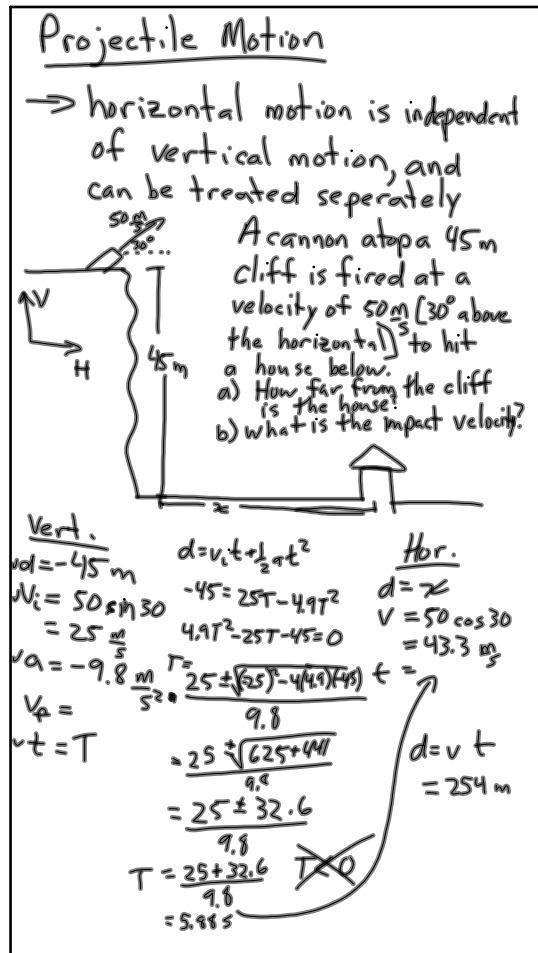 Projectile Motion
→ horizontal motion is independent
of vertical motion, and
can be treated seperately
50 m/s
30°
A cannon atop a 45 m
cliff is fired at a
velocity of 50 m/s [30° above
the horizontal] to hit
a house below.
a) How far from the cliff
is the house?
b) what is the impact velocity?
V
H
45 m
x
Vert.
√d = -45 m
√Vi = 50 sin 30
= 25 m/s
√a = -9.8 m/s²
Vf =
√t = T
d = vit + 1/2 at²
-45 = 25T - 4.9T²
4.9T² - 25T - 45 = 0
T = 25 ± √((-25)² - 4(4.9)(-45)) / 9.8
= 25 ± √(625 + 441) / 9.8
= 25 ± 32.6 / 9.8
T = 25 + 32.6 / 9.8
= 5.88 s
T < 0
Hor.
d = x
V = 50 cos 30
= 43.3 m/s
t =
d = v t
= 254 m